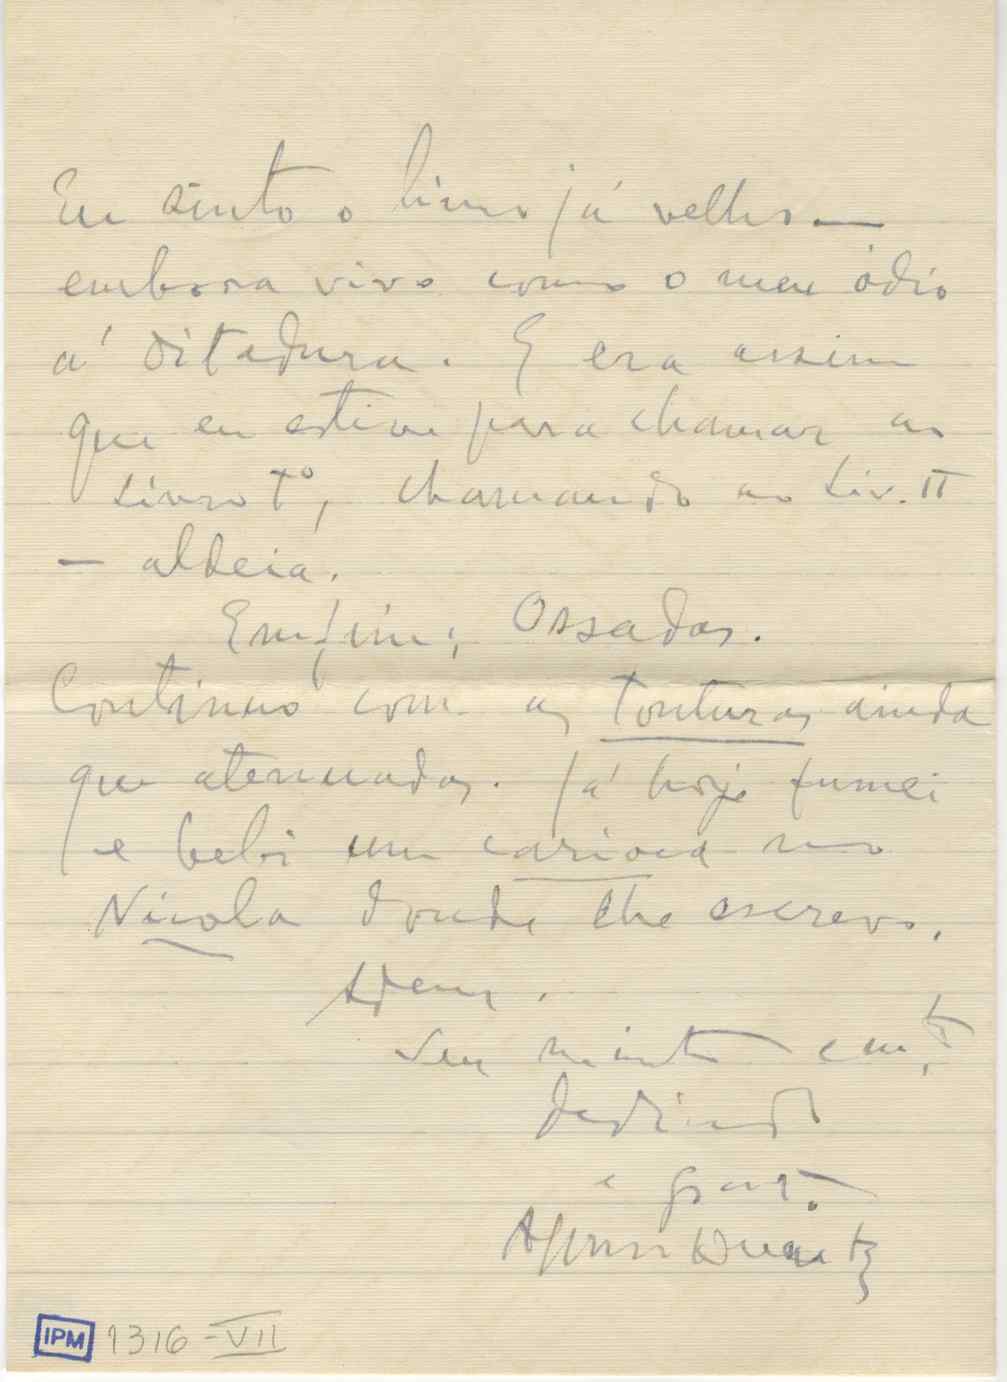 Eu sinto o livro já velho —
embora vivo como o meu ódio
á Ditadura. E era assim
que eu estive para chamar ao
Livro 1º, chamando ao Liv. II
— aldeia.
Emfim; Ossadas.
Continuo com as torturas ainda
que atenuadas. Já hoje fumei
e bebi um carioca no
Nicola donde lhe escrevo.
Adeus.
Seu muito
dedicado
e grat.
Afonso Duarte
IPM 1316-VII